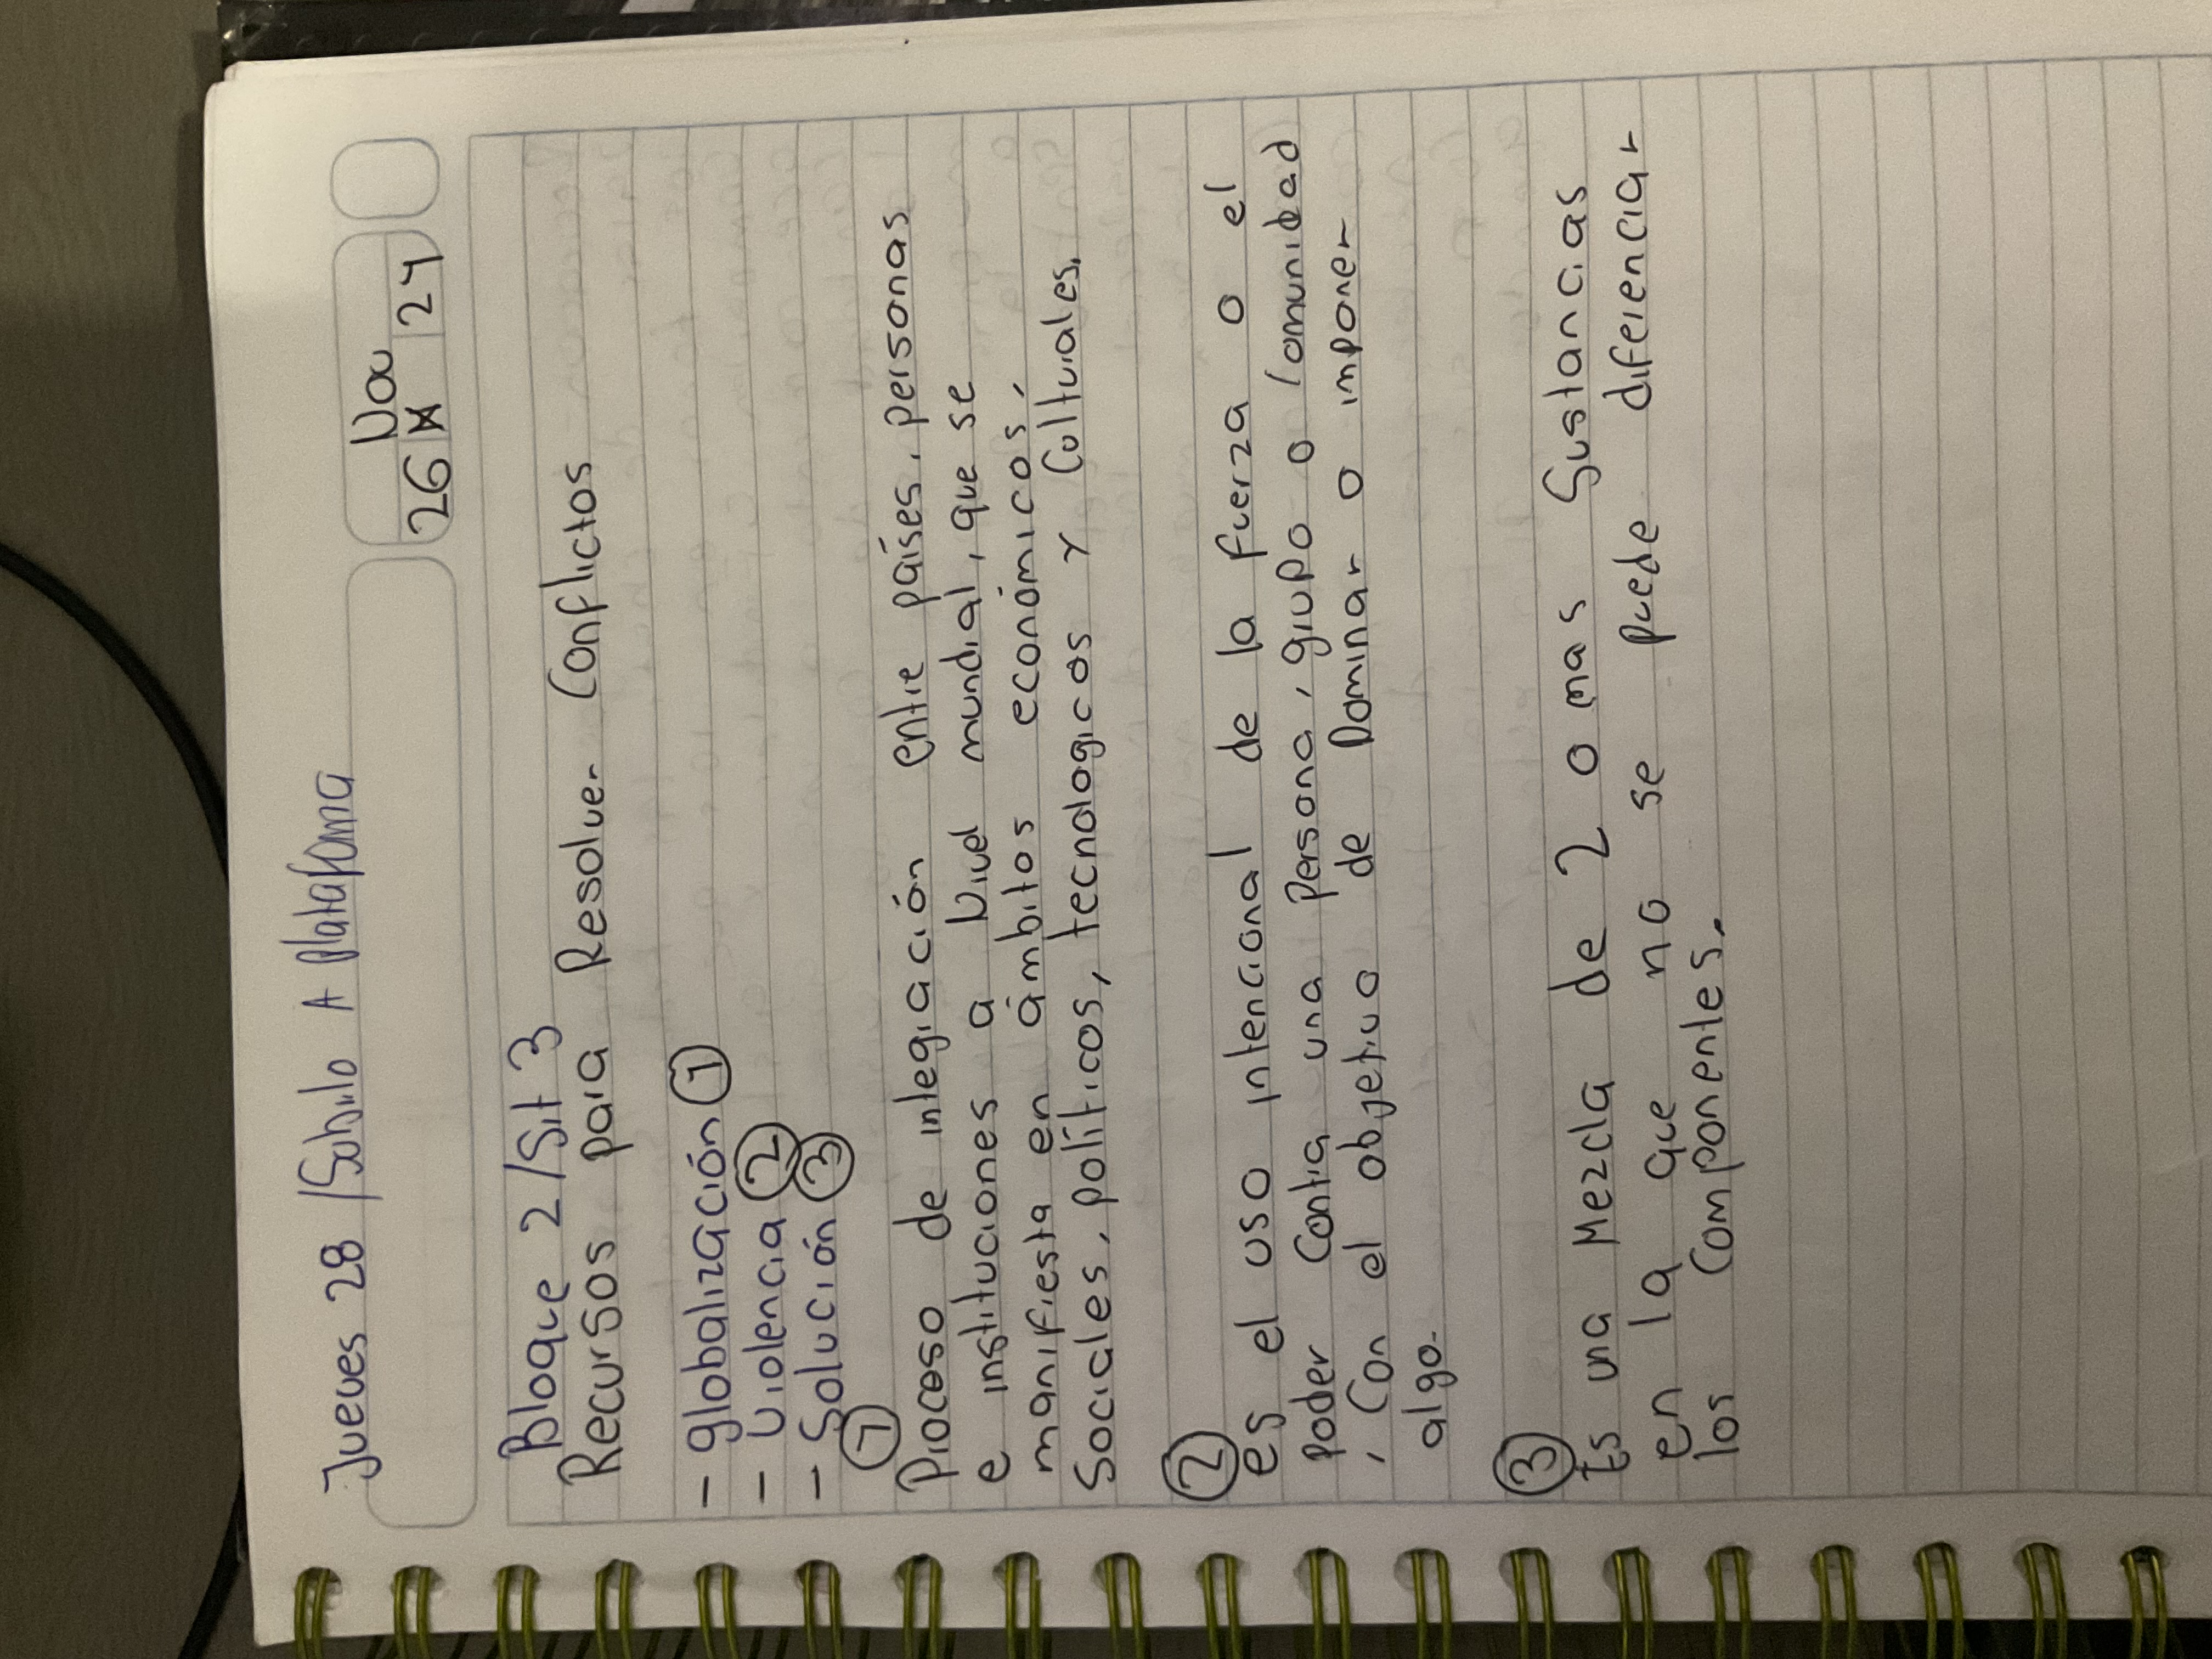 Jueves 28 / Subirlo A Plataforma
Nov
26 24
Bloque 2 / Sit 3
Recursos para Resolver Conflictos
- globalización ①
- violencia ②
- Solución ③
①
Proceso de integración entre países, personas
e instituciones a Nivel mundial, que se
manifiesta en ámbitos económicos,
Sociales, políticos, tecnologicos y Culturales.
②
es el uso intencional de la fuerza o el
poder Contra una Persona, grupo o Comunidad
, Con el objetivo de Dominar o imponer
algo.
③
Es una Mezcla de 2 o mas Sustancias
en la que no se puede diferenciar
los Componentes.